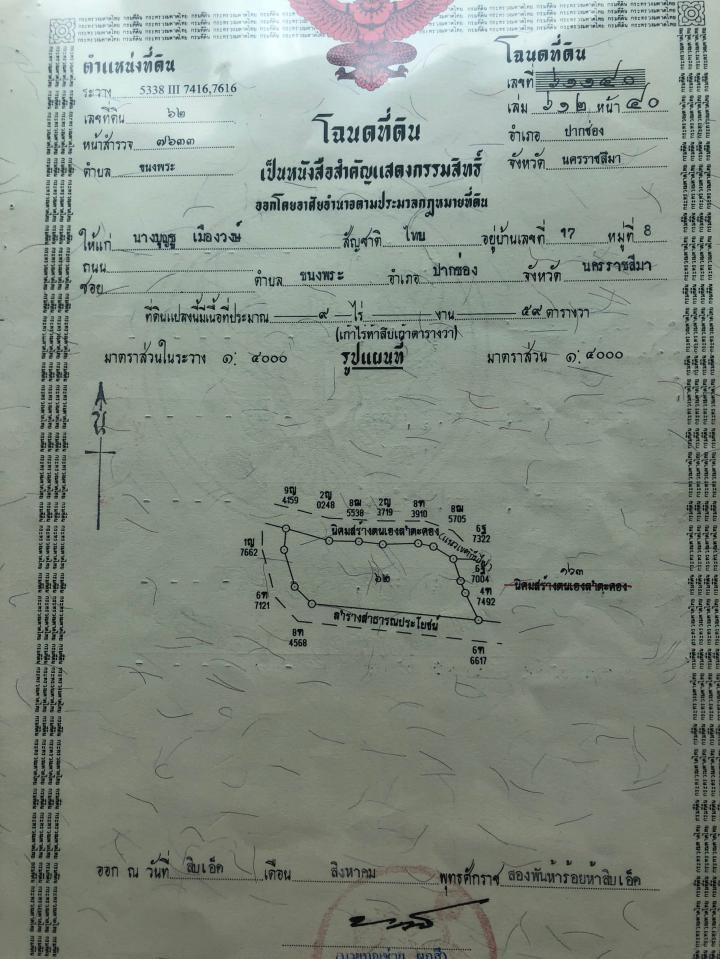 ตำแหน่งที่ดิน
ระวาง 5338 III 7416,7616
เลขที่ดิน ๖๒
หน้าสำรวจ ๗๖๓๓
ตำบล ขนงพระ
โฉนดที่ดิน
เลขที่ ๖๑๑๔๐
เล่ม ๖๑๒ หน้า ๔๐
อำเภอ ปากช่อง
จังหวัด นครราชสีมา
โฉนดที่ดิน
เป็นหนังสือสำคัญแสดงกรรมสิทธิ์
ออกโดยอาศัยอำนาจตามประมวลกฎหมายที่ดิน
ให้แก่ นาง เมืองวงษ์ สัญชาติ ไทย อยู่บ้านเลขที่ 17 หมู่ที่ 8
ถนน
ซอย ตำบล ขนงพระ อำเภอ ปากช่อง จังหวัด นครราชสีมา
ที่ดินแปลงนี้มีเนื้อที่ประมาณ ๙ ไร่ งาน ๕๙ ตารางวา
(เก้าไร่ห้าสิบเก้าตารางวา)
มาตราส่วนในระวาง ๑: ๔๐๐๐ รูปแผนที่ มาตราส่วน ๑:๔๐๐๐
น
9ญ 4159
2ญ 0248
8ฌ 5538
2ญ 3719
8ฑ 3910
8ฌ 5705
6ฐ 7322
นิคมสร้างตนเองลำตะคอง
1ญ 7662
๖๒
6ฐ 7004
๑๖๓
นิคมสร้างตนเองลำตะคอง
6ฑ 7121
4ฑ 7492
ลำรางสาธารณประโยชน์
8ฑ 4568
6ฑ 6617
ออก ณ วันที่ สิบเอ็ด เดือน สิงหาคม พุทธศักราช สองพันห้าร้อยห้าสิบเอ็ด